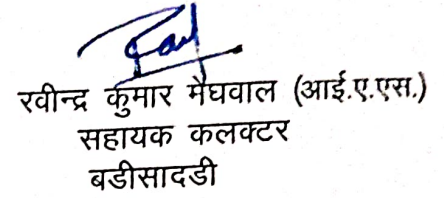 रवीन्द्र कुमार मेघवाल (आई.ए.एस.)
सहायक कलक्टर
बडीसादडी